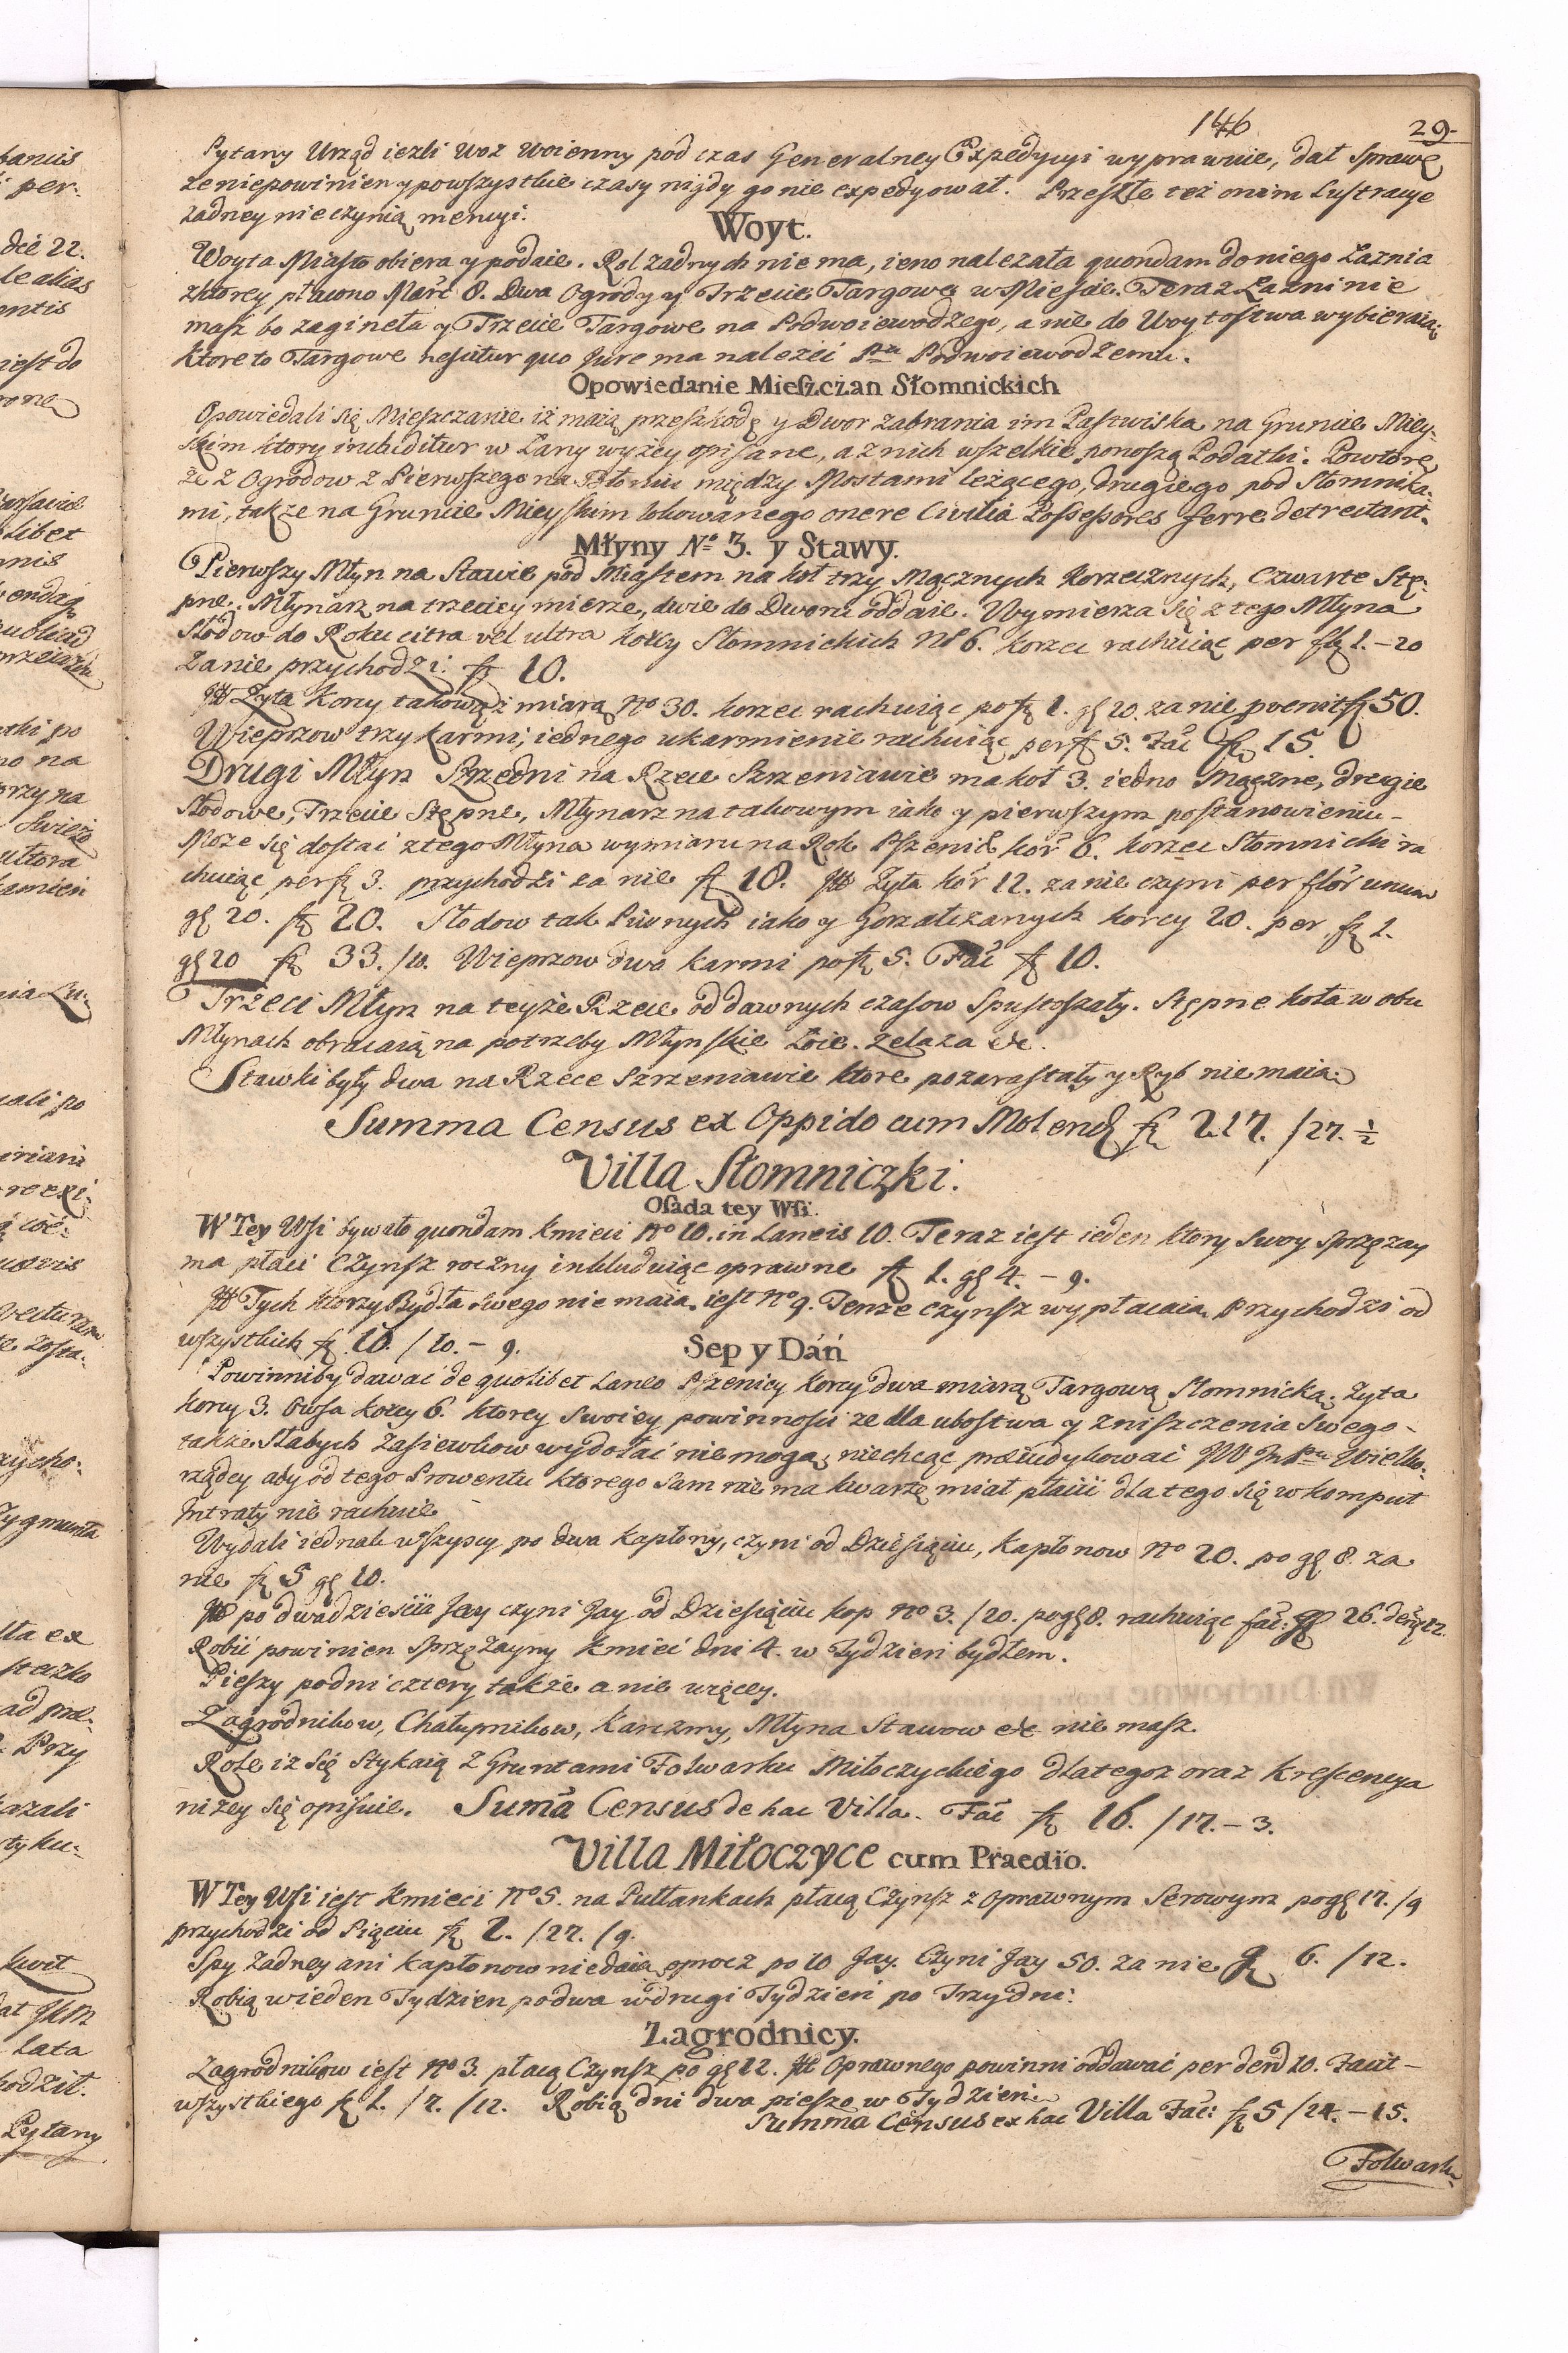 146 29.
Pytany Urząd iezli woz woienny pod czas Generalney Expedycyi wyprawuie, dał Sprawę
ze niepowinien y powszystkie czasy nigdy go nie expedyował. Przeszłe też onim Lustracye
żadney nie czynią mencyi.
Woyt.
Woyta Miasto obiera y podaie. Rol żadnych nie ma, ieno nalezała quondam do niego Łaznia
z ktorey płacono Març 8. Dwa Ogrody y Trzecie Targowe w Mieście. Teraz Łazni nie
masz bo zagineła y Trzecie Targowe na Podwoiewodzego, a nie do Woytostwa wybieraią
ktore to Targowe nescitur quo Jure ma nalezéć Pnu Podwoiewodzemu.
Opowiedanie Mieszczan Słomnickich
Opowiedali się Mieszczanie iż maią przeszkodę y Dwor zabrania im Pastwiska na Gruncie Miey-
skim ktory includitur w Łany wyżey opisane, a z nich wszelkie ponoszą Podatki. Powtore
że z Ogrodow z Pierwszego na Błoniu między Mostami leżącego, drugiego pod Słomnika-
mi, także na Gruncie Mieyskim lokowanego onere Civilia Possessores ferre detrectant.
Młyny No 3. y Stawy.
Pierwszy Młyn na Stawie pod Miastem na koł trzy Mącznych Korzecznych, Czwarte Stę-
pne. Młynarz na trzeciey mierze, dwie do Dworu oddaie. Wymierza się z tego Młyna
Słodow do Roku citra vel ultra korcy Słomnickich No 6. korzec rachuiąc per fl 1.–20
Za nie przychodzi fl 10.
Itt Żyta Korcy takowąż miarą No 30. korzec rachuiąc po fl 1. gł 20. za nie proenit fl 50.
Wieprzow trzy karmi, iednego ukarmienie rachuiąc per fl 5. Fac fl 15
Drugi Młyn Szrzedni na Rzece Szrzeniawie ma koł 3. iedno Mączne, drugie
Słodowe, Trzecie Stępne, Młynarz na takowym iako y pierwszym postanowieniu-
Może się dostać z tego Młyna wymiaru na Rok Pszenice kor 6. korzec Słomnicki ra
chuiąc per fl 3. przychodzi za nie fl 18. Itt Żyta kor 12. za nie czyni per flor unum
gł 20. fl 20. Słodow tak Piwnych iako y Gorzałczanych korcy 20. per fl 1.
gł 20 fl 33. /10. Wieprzow dwa karmi po fl 5. Fac fl 10.
Trzeci Młyn na teyże Rzece od dawnych czasow Spustoszały. Stępne koła w obu
Młynach obracaią na potrzeby Młynskie Łoie. Zelaza etc.
Stawki były dwa na Rzece Szrzeniawie ktore pozarastały y Ryb nie maią
Summa Census ex Oppido cum Molend fl 217. /27. ½
Villa Słomniczki.
Osada tey Wsi.
W Tey Wsi bywało quondam Kmieci No 10. in Laneis 10. Teraz iest ieden ktory swoy sprzęzay
ma płaci Czynsz roczny inkluduiąc oprawne fl 1. gł 4. – 9.
Itt Tych ktorzy Bydła swego nie maią iest No 9. Tenże Czynsz wypłacaią Przychodzi od
wszystkich fl 10. /10. – 9.
Sep y Dáń
Powinni by dawać de quolibet Laneo Pszenicy korcy dwa miarą Targową Słomnicką. Żyta
korcy 3. Owsa korcy 6. ktorey swoiey powinności że dla ubostwa y zniszczenia swego-
także Słabych Zasiewkow wydołać nie mogą, niechcąc preiudykować JW Jm Pnu Wielko-
rządcy aby od tego Prowentu ktorego sam nie ma kwartę miał płacić dla tego się w komput
Intraty nie rachuie
Wydali iednak wszyscy po dwa kapłony, czyni od Dziesiąciu, Kapłonow No 20. po gł 8. za
nie fl 5 gł 10.
Itt po dwadzieścia Jay czyni Jay od Dziesiąciu kop No 3. /20. po gł 8. rachuiąc fac: gł 26. den 12.
Robić powinien sprzężayny Kmieć dni 4. w Tydzień bydłem.
Pieszy po dni cztery także a nie więcey.
Zagrodnikow, Chałupnikow, Karczmy, Młyna Stawow etc nie masz.
Role iż się stykaią z Gruntami Folwarku Miłoczyckiego dlategoż oraz krescencya
niżey się opisuie. Suma Census de hac Villa. Fac fl 16. /17. – 3.
Villa Miłoczyce cum Praedio.
W Tey Wsi iest Kmieci No 5. na Pułłankach płacą Czynsz z Oprawnym Serowym po gł 17. /9
przychodzi od Piąciu fl 2. /27. /9.
Spy żadney ani kapłonow nie daią oprocz po 10 Jay. Czyni Jay 50. za nie gł 6. /12.
Robią w ieden Tydzien po dwa w drugi Tydzień po Trzy dni.
Zagrodnicy.
Zagrodnikow iest No 3. płacą Czynsz po gł 12. Itt Oprawnego powinni oddawać per den 10. Facit –
wszystkiego fl 1. /7. /12. Robią dni dwa pieszo w Tydzień
Summa Census ex hac Villa Fac: fl 5 /24. – 15.
Folwark